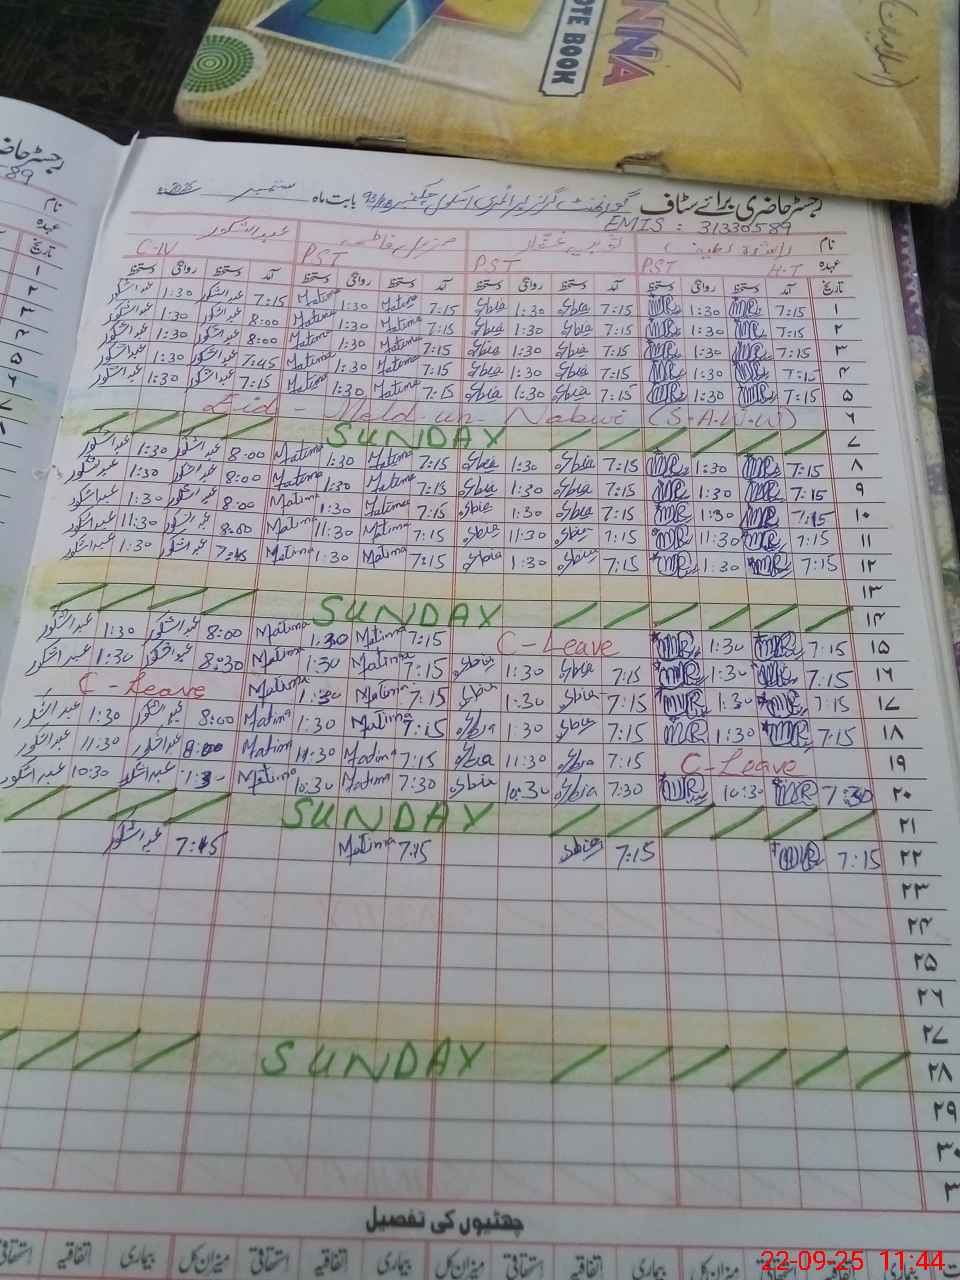 NNA
OTE BOOK
رجسٹر حاضری
589
نام
عہدہ
تاریخ
رجسٹر حاضری برائے سٹاف گورنمنٹ گرلز ایلیمنٹری اسکول چک نمبر بابت ماہ ستمبر 2025ء
EMIS : 31330589
نام عبدالشکور
عہدہ H.T PST PST PST C-IV
تاریخ آمد دستخط روانگی دستخط آمد دستخط روانگی دستخط آمد دستخط روانگی دستخط آمد دستخط روانگی دستخط
۱ 7:15 MR 1:30 MR 7:15 Sbia 1:30 Sbia 7:15 Matima 1:30 Matima 7:15 عبدالشکور 1:30 عبدالشکور
۲ 7:15 MR 1:30 MR 7:15 Sbia 1:30 Sbia 7:15 Matima 1:30 Matima 8:00 عبدالشکور 1:30 عبدالشکور
۳ 7:15 MR 1:30 MR 7:15 Sbia 1:30 Sbia 7:15 Matima 1:30 Matima 8:00 عبدالشکور 1:30 عبدالشکور
۴ 7:15 MR 1:30 MR 7:15 Sbia 1:30 Sbia 7:15 Matima 1:30 Matima 7:45 عبدالشکور 1:30 عبدالشکور
۵ 7:15 MR 1:30 MR 7:15 Sbia 1:30 Sbia 7:15 Matima 1:30 Matima 7:15 عبدالشکور 1:30 عبدالشکور
۶ Eid - Meld-un- Nabwi (S.A.W.W)
۷ SUNDAY
۸ 7:15 MR 1:30 MR 7:15 Sbia 1:30 Sbia 7:15 Matima 1:30 Matima 8:00 عبدالشکور 1:30 عبدالشکور
۹ 7:15 MR 1:30 MR 7:15 Sbia 1:30 Sbia 7:15 Matima 1:30 Matima 8:00 عبدالشکور 1:30 عبدالشکور
۱۰ 7:15 MR 1:30 MR 7:15 Sbia 1:30 Sbia 7:15 Matima 1:30 Matima 8:00 عبدالشکور 1:30 عبدالشکور
۱۱ 7:15 MR 11:30 MR 7:15 Sbia 11:30 Sbia 7:15 Matima 11:30 Matima 8:00 عبدالشکور 11:30 عبدالشکور
۱۲ 7:15 MR 1:30 MR 7:15 Sbia 1:30 Sbia 7:15 Matima 1:30 Matima 7:45 عبدالشکور 1:30 عبدالشکور
۱۳
۱۴ SUNDAY
۱۵ 7:15 MR 1:30 MR C-Leave 7:15 Matima 1:30 Matima 8:00 عبدالشکور 1:30 عبدالشکور
۱۶ 7:15 MR 1:30 MR 7:15 Sbia 1:30 Sbia 7:15 Matima 1:30 Matima 8:30 عبدالشکور 1:30 عبدالشکور
۱۷ 7:15 MR 1:30 MR 7:15 Sbia 1:30 Sbia 7:15 Matima 1:30 Matima C-Leave
۱۸ 7:15 MR 1:30 MR 7:15 Sbia 1:30 Sbia 7:15 Matima 1:30 Matima 8:00 عبدالشکور 1:30 عبدالشکور
۱۹ C-Leave 7:15 Sbia 11:30 Sbia 7:15 Matima 11:30 Matima 8:00 عبدالشکور 11:30 عبدالشکور
۲۰ 7:30 MR 10:30 MR 7:30 Sbia 10:30 Sbia 7:30 Matima 10:30 Matima عبدالشکور 10:30 عبدالشکور
۲۱ SUNDAY
۲۲ 7:15 MR 7:15 Sbia 7:15 Matima 7:45 عبدالشکور
۲۳
۲۴
۲۵
۲۶
۲۷
۲۸ SUNDAY
۲۹
۳۰
چھٹیوں کی تفصیل
اتفاقیہ استحقاقی میزان کل بیماری اتفاقیہ استحقاقی میزان کل بیماری اتفاقیہ استحقاقی میزان کل بیماری اتفاقیہ استحقاقی
22-09-25 11:44